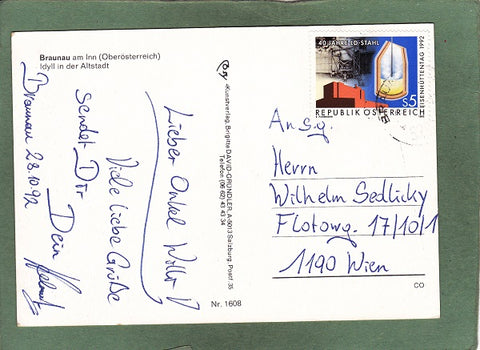 Braunau am Inn (Oberösterreich)
Idyll in der Altstadt
Braunau 28.10.92
Lieber Onkel Willi!
Viele liebe Grüße
sendet Dir
Dein Helmut
»Kunstverlag, Brigitte DAVID-GRÜNDLER, A-5013 Salzburg, Postf. 35
Telefon (06 62) 43 43 34
Nr. 1608
40 JAHRE LD-STAHL
EISENHÜTTENTAG 1992
S5
REPUBLIK ÖSTERREICH
An
Herrn
Wilhelm Sedlicky
Flotowg. 17/10/1
1190 Wien
CO